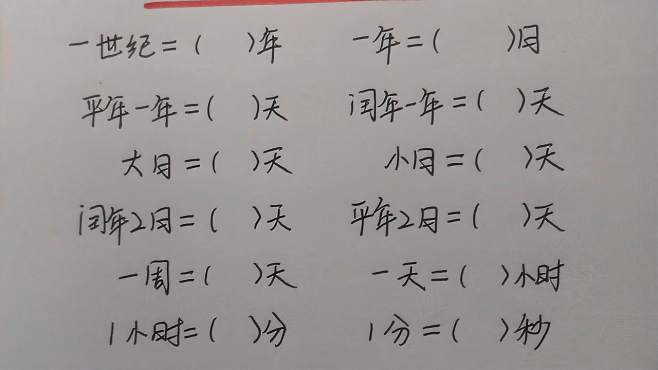 一世纪=( )年 一年=( )月
平年一年=( )天 闰年一年=( )天
大月=( )天 小月=( )天
闰年2月=( )天 平年2月=( )天
一周=( )天 一天=( )小时
1小时=( )分 1分=( )秒